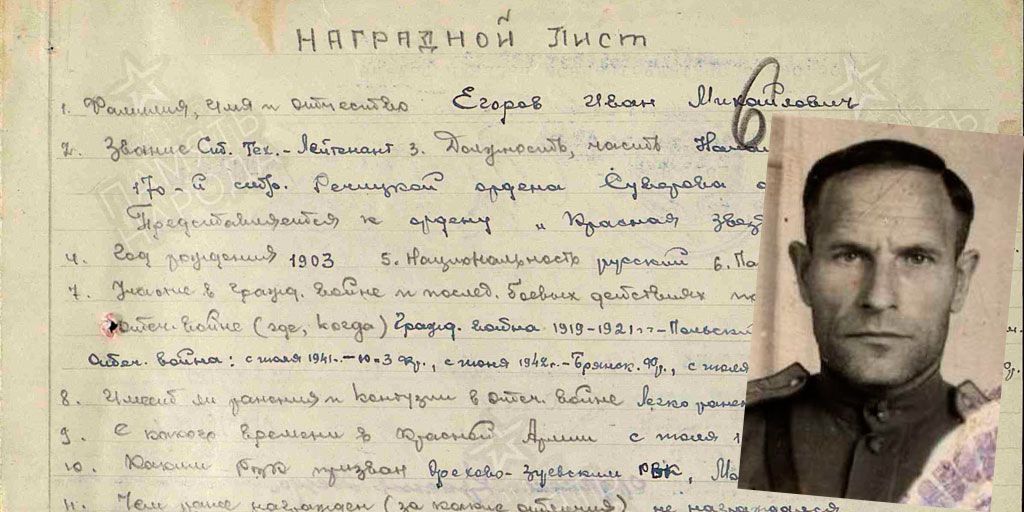 НАГРАДНОЙ ЛИСТ
6
1. Фамилия, имя и отчество Егоров Иван Михайлович
2. Звание Ст. Тех.-Лейтенант 3. Должность, часть
170-й стр. Речицкой ордена Суворова
Представляется к ордену „Красная
4. Год рождения 1903 5. Национальность русский 6.
7. Участие в гражд. войне и послед. боевых действиях
отеч. войне (где, когда) Гражд. война 1919-1921 гг - Польский
Отеч. война: с июля 1941 г. - Ю-З Фр., с июня 1942 г. - Брянск. Фр., с июля
8. Имеет ли ранения и контузии в отеч. войне Легко ранен
9. С какого времени в Красной Армии с июля
10. Каким РВК призван Орехово-Зуевским РВК,
11. Чем ранее награжден (за какие отличия) не награждался
ПАМЯТЬ НАРОДА